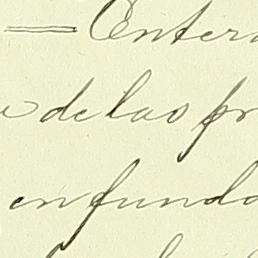 — Enter
e de las pr
en funda